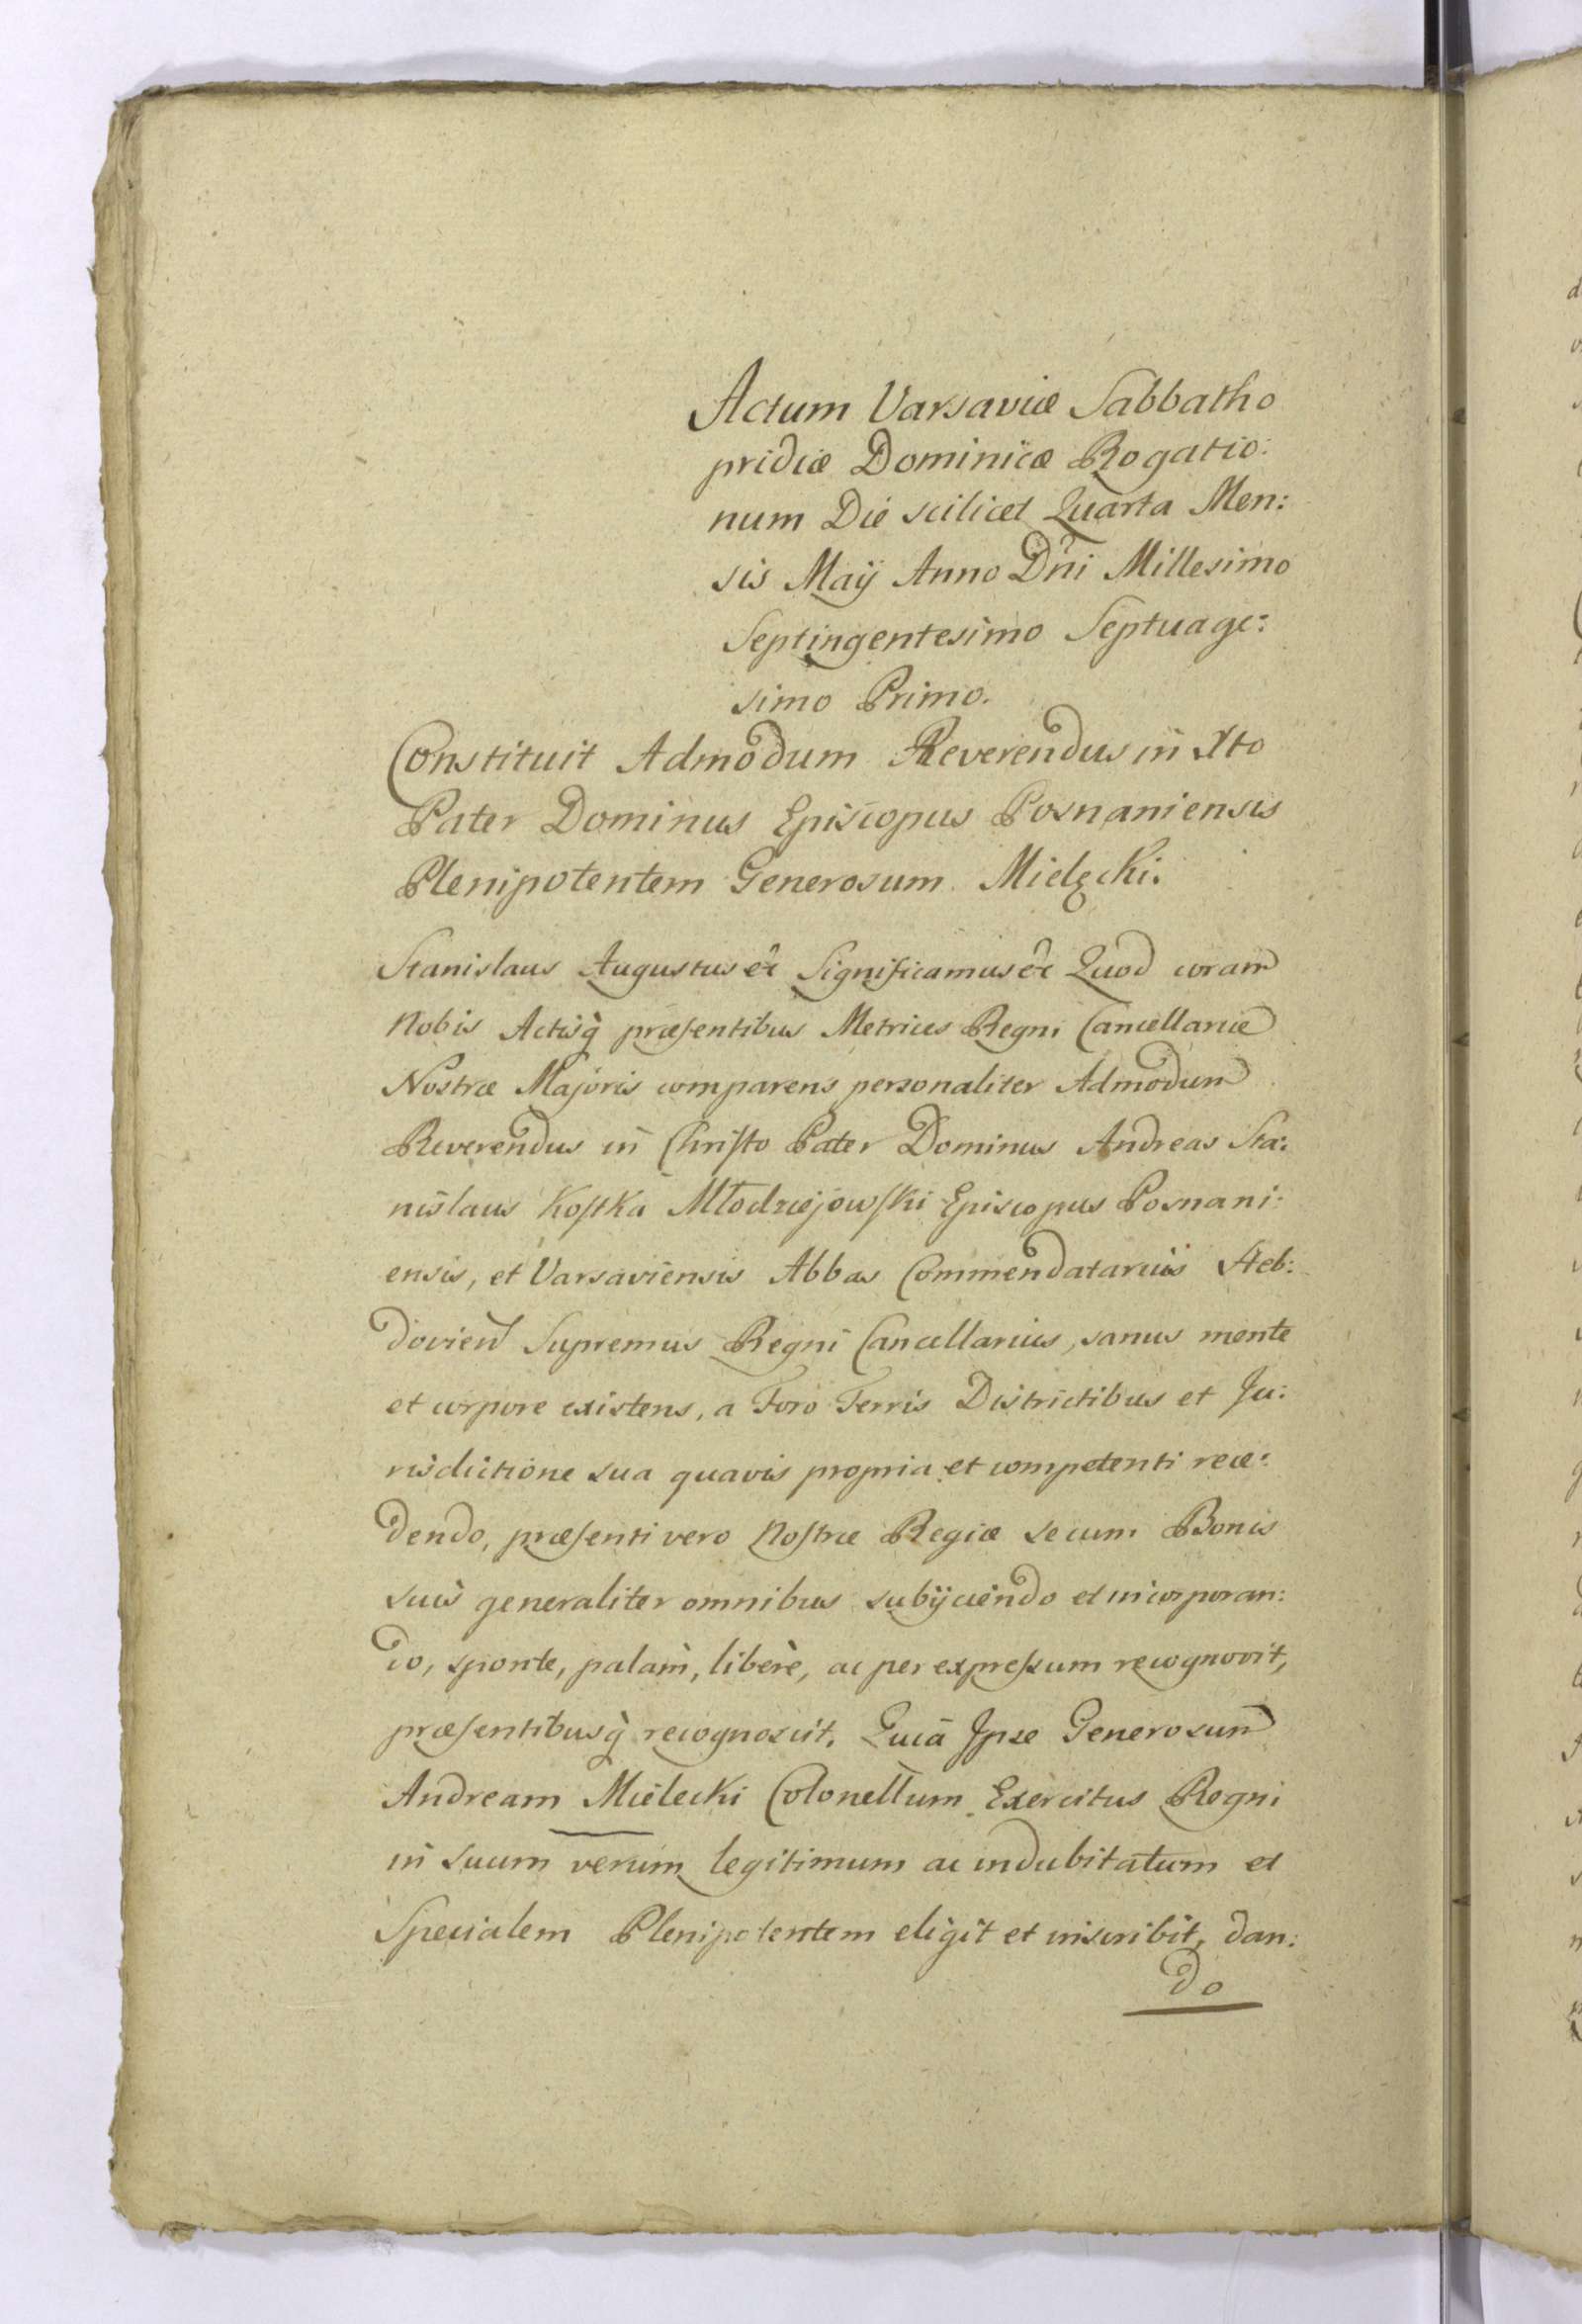 Actum Varsaviæ Sabbatho
pridiæ Dominicæ Rogatio:
num Die scilicet Quarta Men:
sis Maÿ Anno Dñi Millesimo
Septingentesimo Septuage:
simo Primo.
Constituit Admodum Reverendus in Xto
Pater Dominus Episcopus Posnaniensis
Plenipotentem Generosum Mielęcki.
Stanislaus Augustus &c Significamus &c Quod coram
Nobis Actisq̀ præsentibus Metrices Regni Cancellariæ
Nostræ Majoris comparens personaliter Admodum
Reverendus in Christo Pater Dominus Andreas Sta:
nislaus Kostka Młodziejowski Episcopus Posnani:
ensis, et Varsaviensis Abbas Commendatarius Heb:
dovien Supremus Regni Cancellarius, sanus mente
et corpore existens, a Foro Terris Districtibus et Ju:
risdictione sua quavis propria et competenti rece:
dendo, præsenti vero Nostræ Regiæ se cum Bonis
suis generaliter omnibus subÿciendo et incorporan:
do, sponte, palam, liberè, ac per expressum recognovit,
præsentibusq̀ recognoscit, Quia Ipse Generosum
Andream Mielecki Colonellum Exercitus Regni
in suum verum legitimum ac indubitatum et
Specialem Plenipotentem eligit et inscribit, dan:
do